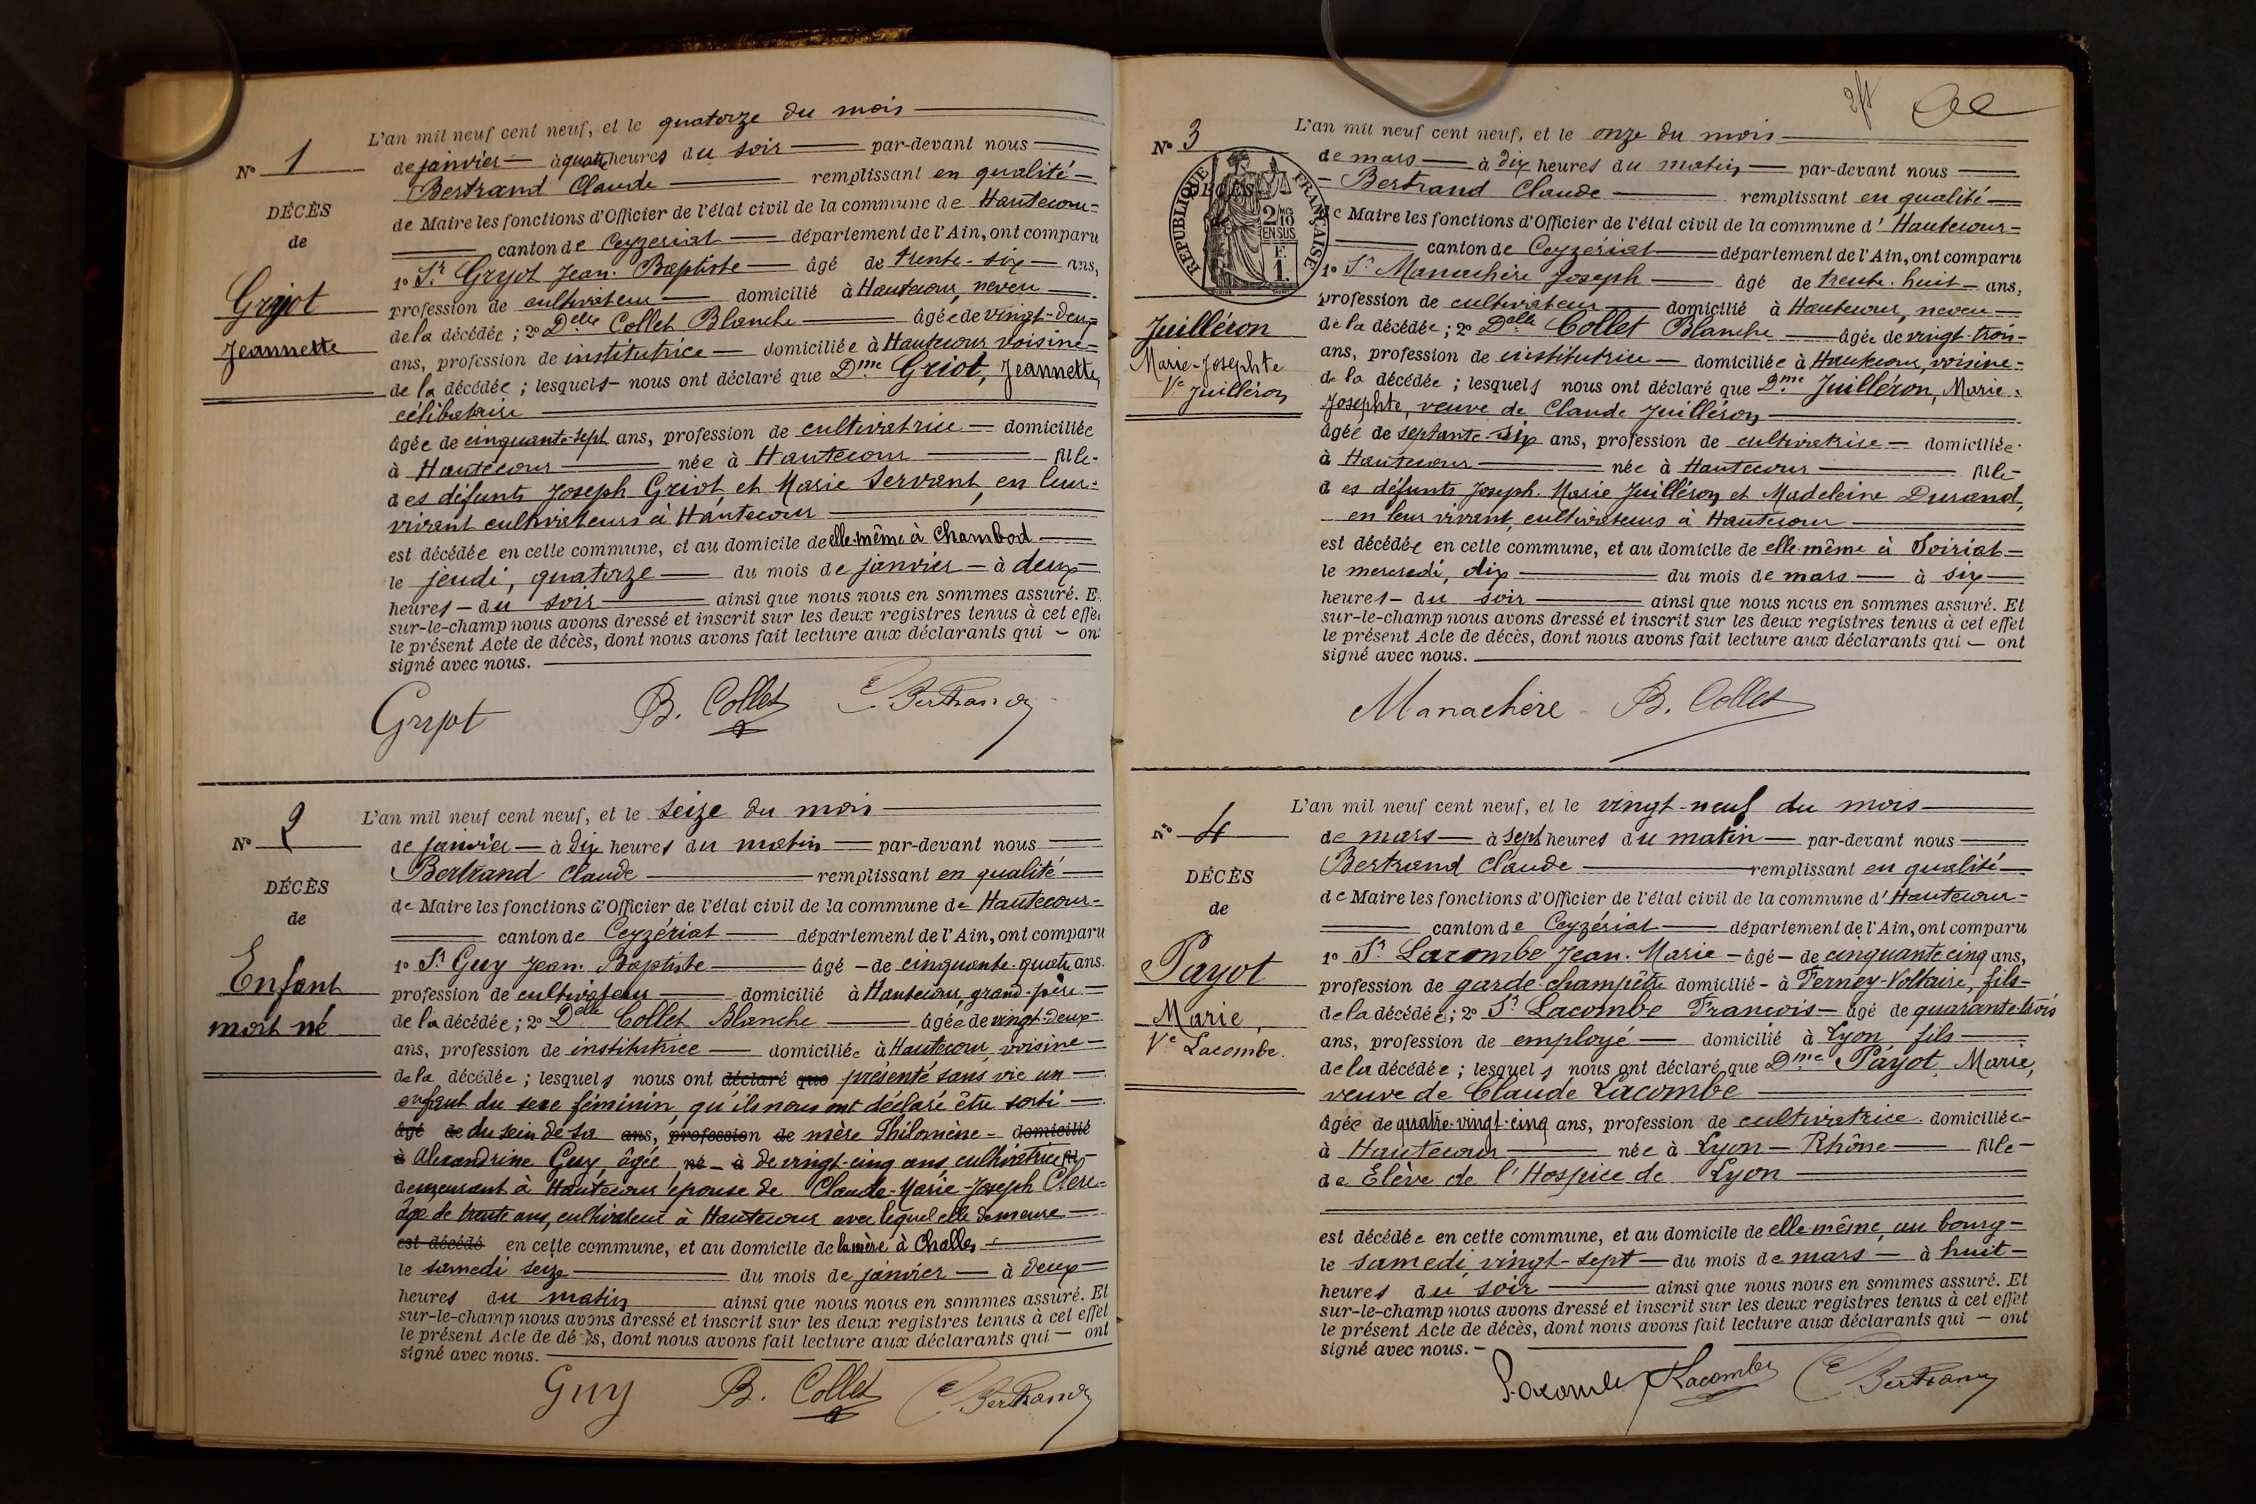 L'an mil neuf cent neuf, et le quatorze du mois
N° 1
de janvier à quatre heures du soir par-devant nous
Bertrand Claude remplissant en qualité
DÉCÈS
de Maire les fonctions d'Officier de l'état civil de la commune de Hautecour
de
canton de Ceyzeriat département de l'Ain, ont comparu
1° Sr Gryot Jean-Baptiste âgé de trente-six ans,
Griot
profession de cultivateur domicilié à Hautecour, neveu
de la décédée; 2° Delle Collet Blanche âgée de vingt-deux
Jeannette
ans, profession de institutrice domiciliée à Hautecour voisine
de la décédée; lesquels nous ont déclaré que Dme Griot, Jeannette,
célibataire
âgée de cinquante-sept ans, profession de cultivatrice domiciliée
à Hautecour née à Hautecour fille
des défunts Joseph Griot et Marie Servant, en leur
vivant cultivateurs à Hautecour
est décédée en cette commune, et au domicile de elle-même à Chambod
le jeudi, quatorze du mois de janvier à deux
heures du soir ainsi que nous nous en sommes assuré. E
sur-le-champ nous avons dressé et inscrit sur les deux registres tenus à cet effe
le présent Acte de décès, dont nous avons fait lecture aux déclarants qui on
signé avec nous.
Gryot B. Collet C. Bertrand
L'an mil neuf cent neuf, et le seize du mois
N° 2
de janvier à dix heures du matin par-devant nous
Bertrand Claude remplissant en qualité
DÉCÈS
de Maire les fonctions d'Officier de l'état civil de la commune de Hautecour
de
canton de Ceyzériat département de l'Ain, ont comparu
1° Sr Guy Jean-Baptiste âgé de cinquante-quatre ans.
Enfant
profession de cultivateur domicilié à Hautecour, grand-père
mort né
de la décédée; 2° Delle Collet Blanche âgée de vingt-deux
ans, profession de institutrice domiciliée à Hautecour voisine
de la décédée; lesquels nous ont déclaré que présenté sans vie un
enfant du sexe féminin qu'ils nous ont déclaré être sorti
âgé de du sein de sa ans, profession de mère Philomène domicilié
à Alexandrine Guy, âgée né à de vingt-cinq ans, cultivatrice fil
demeurant à Hautecour épouse de Claude-Marie-Joseph Clerc
âgé de trente ans, cultivateur à Hautecour avec lequel elle demeure
est décédé en cette commune, et au domicile de la mère à Challes
le samedi seize du mois de janvier à deux
heures du matin ainsi que nous nous en sommes assuré. Et
sur-le-champ nous avons dressé et inscrit sur les deux registres tenus à cet effet
le présent Acte de décès, dont nous avons fait lecture aux déclarants qui ont
signé avec nous.
Guy B. Collet C. Bertrand
L'an mil neuf cent neuf, et le onze du mois
N° 3
de mars à dix heures du matin par-devant nous
Bertrand Claude remplissant en qualité
DÉCÈS
RÉPUBLIQUE FRANÇAISE
2/10 EN SUS
F. 1.
de Maire les fonctions d'Officier de l'état civil de la commune d'Hautecour
canton de Ceyzériat département de l'Ain, ont comparu
1° Sr Manachère Joseph âgé de trente-huit ans,
profession de cultivateur domicilié à Hautecour, neveu
Juilléron
de la décédée; 2° Delle Collet Blanche âgée de vingt-trois
ans, profession de institutrice domiciliée à Hautecour, voisine
Marie-Josephte
de la décédée; lesquels nous ont déclaré que Dme Juilléron, Marie
Ve Juilléron
Josephte, veuve de Claude Juilléron
âgée de septante-six ans, profession de cultivatrice domiciliée
à Hautecour née à Hautecour fille
des défunts Joseph-Marie Juilléron et Madeleine Durand,
en leur vivant, cultivateurs à Hautecour
est décédée en cette commune, et au domicile de elle-même à Soiriat
le mercredi, dix du mois de mars à six
heures du soir ainsi que nous nous en sommes assuré. Et
sur-le-champ nous avons dressé et inscrit sur les deux registres tenus à cet effet
le présent Acte de décès, dont nous avons fait lecture aux déclarants qui ont
signé avec nous.
Manachère B. Collet
L'an mil neuf cent neuf, et le vingt-neuf du mois
N° 4
de mars à sept heures du matin par-devant nous
Bertrand Claude remplissant en qualité
DÉCÈS
de Maire les fonctions d'Officier de l'état civil de la commune d'Hautecour
de
canton de Ceyzériat département de l'Ain, ont comparu
1° Sr Lacombe Jean-Marie âgé de cinquante cinq ans,
Payot
profession de garde-champêtre domicilié à Ferney-Voltaire, fils
de la décédée; 2° Sr Lacombe François âgé de quarante-trois
Marie,
ans, profession de employé domicilié à Lyon fils
Ve Lacombe.
de la décédée; lesquels nous ont déclaré que Dme Payot Marie,
veuve de Claude Lacombe
âgée de quatre-vingt-cinq ans, profession de cultivatrice domiciliée
à Hautecour née à Lyon Rhône fille
de Elève de l'Hospice de Lyon
est décédée en cette commune, et au domicile de elle-même, au bourg
le samedi vingt-sept du mois de mars à huit
heures du soir ainsi que nous nous en sommes assuré. Et
sur-le-champ nous avons dressé et inscrit sur les deux registres tenus à cet effet
le présent Acte de décès, dont nous avons fait lecture aux déclarants qui ont
signé avec nous.
Lacombe Lacombe C. Bertrand